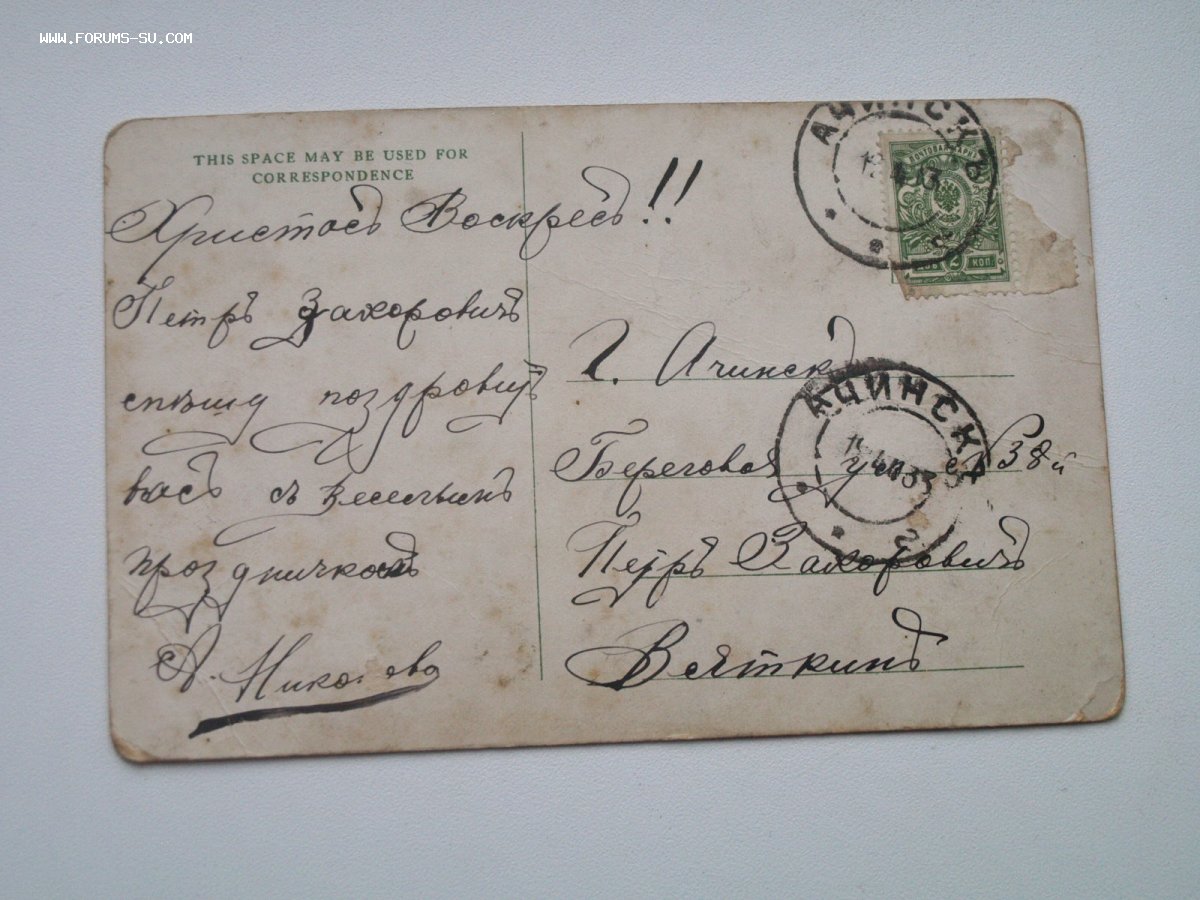 WWW.FORUMS-SU.COM
THIS SPACE MAY BE USED FOR
CORRESPONDENCE
Христосъ Воскресъ!!
Петръ Захоровичъ
спѣшу поздровит
васъ съ Веселым
проздничкомъ
А. Николаева
АЧИНСКЪ
13
ПОЧТОВАЯ МАРКА
2 КОП.
Г. Ачинскъ
АЧИНСКЪ
Береговая ул. № 38й
Петръ Захоровичъ
Вяткинъ